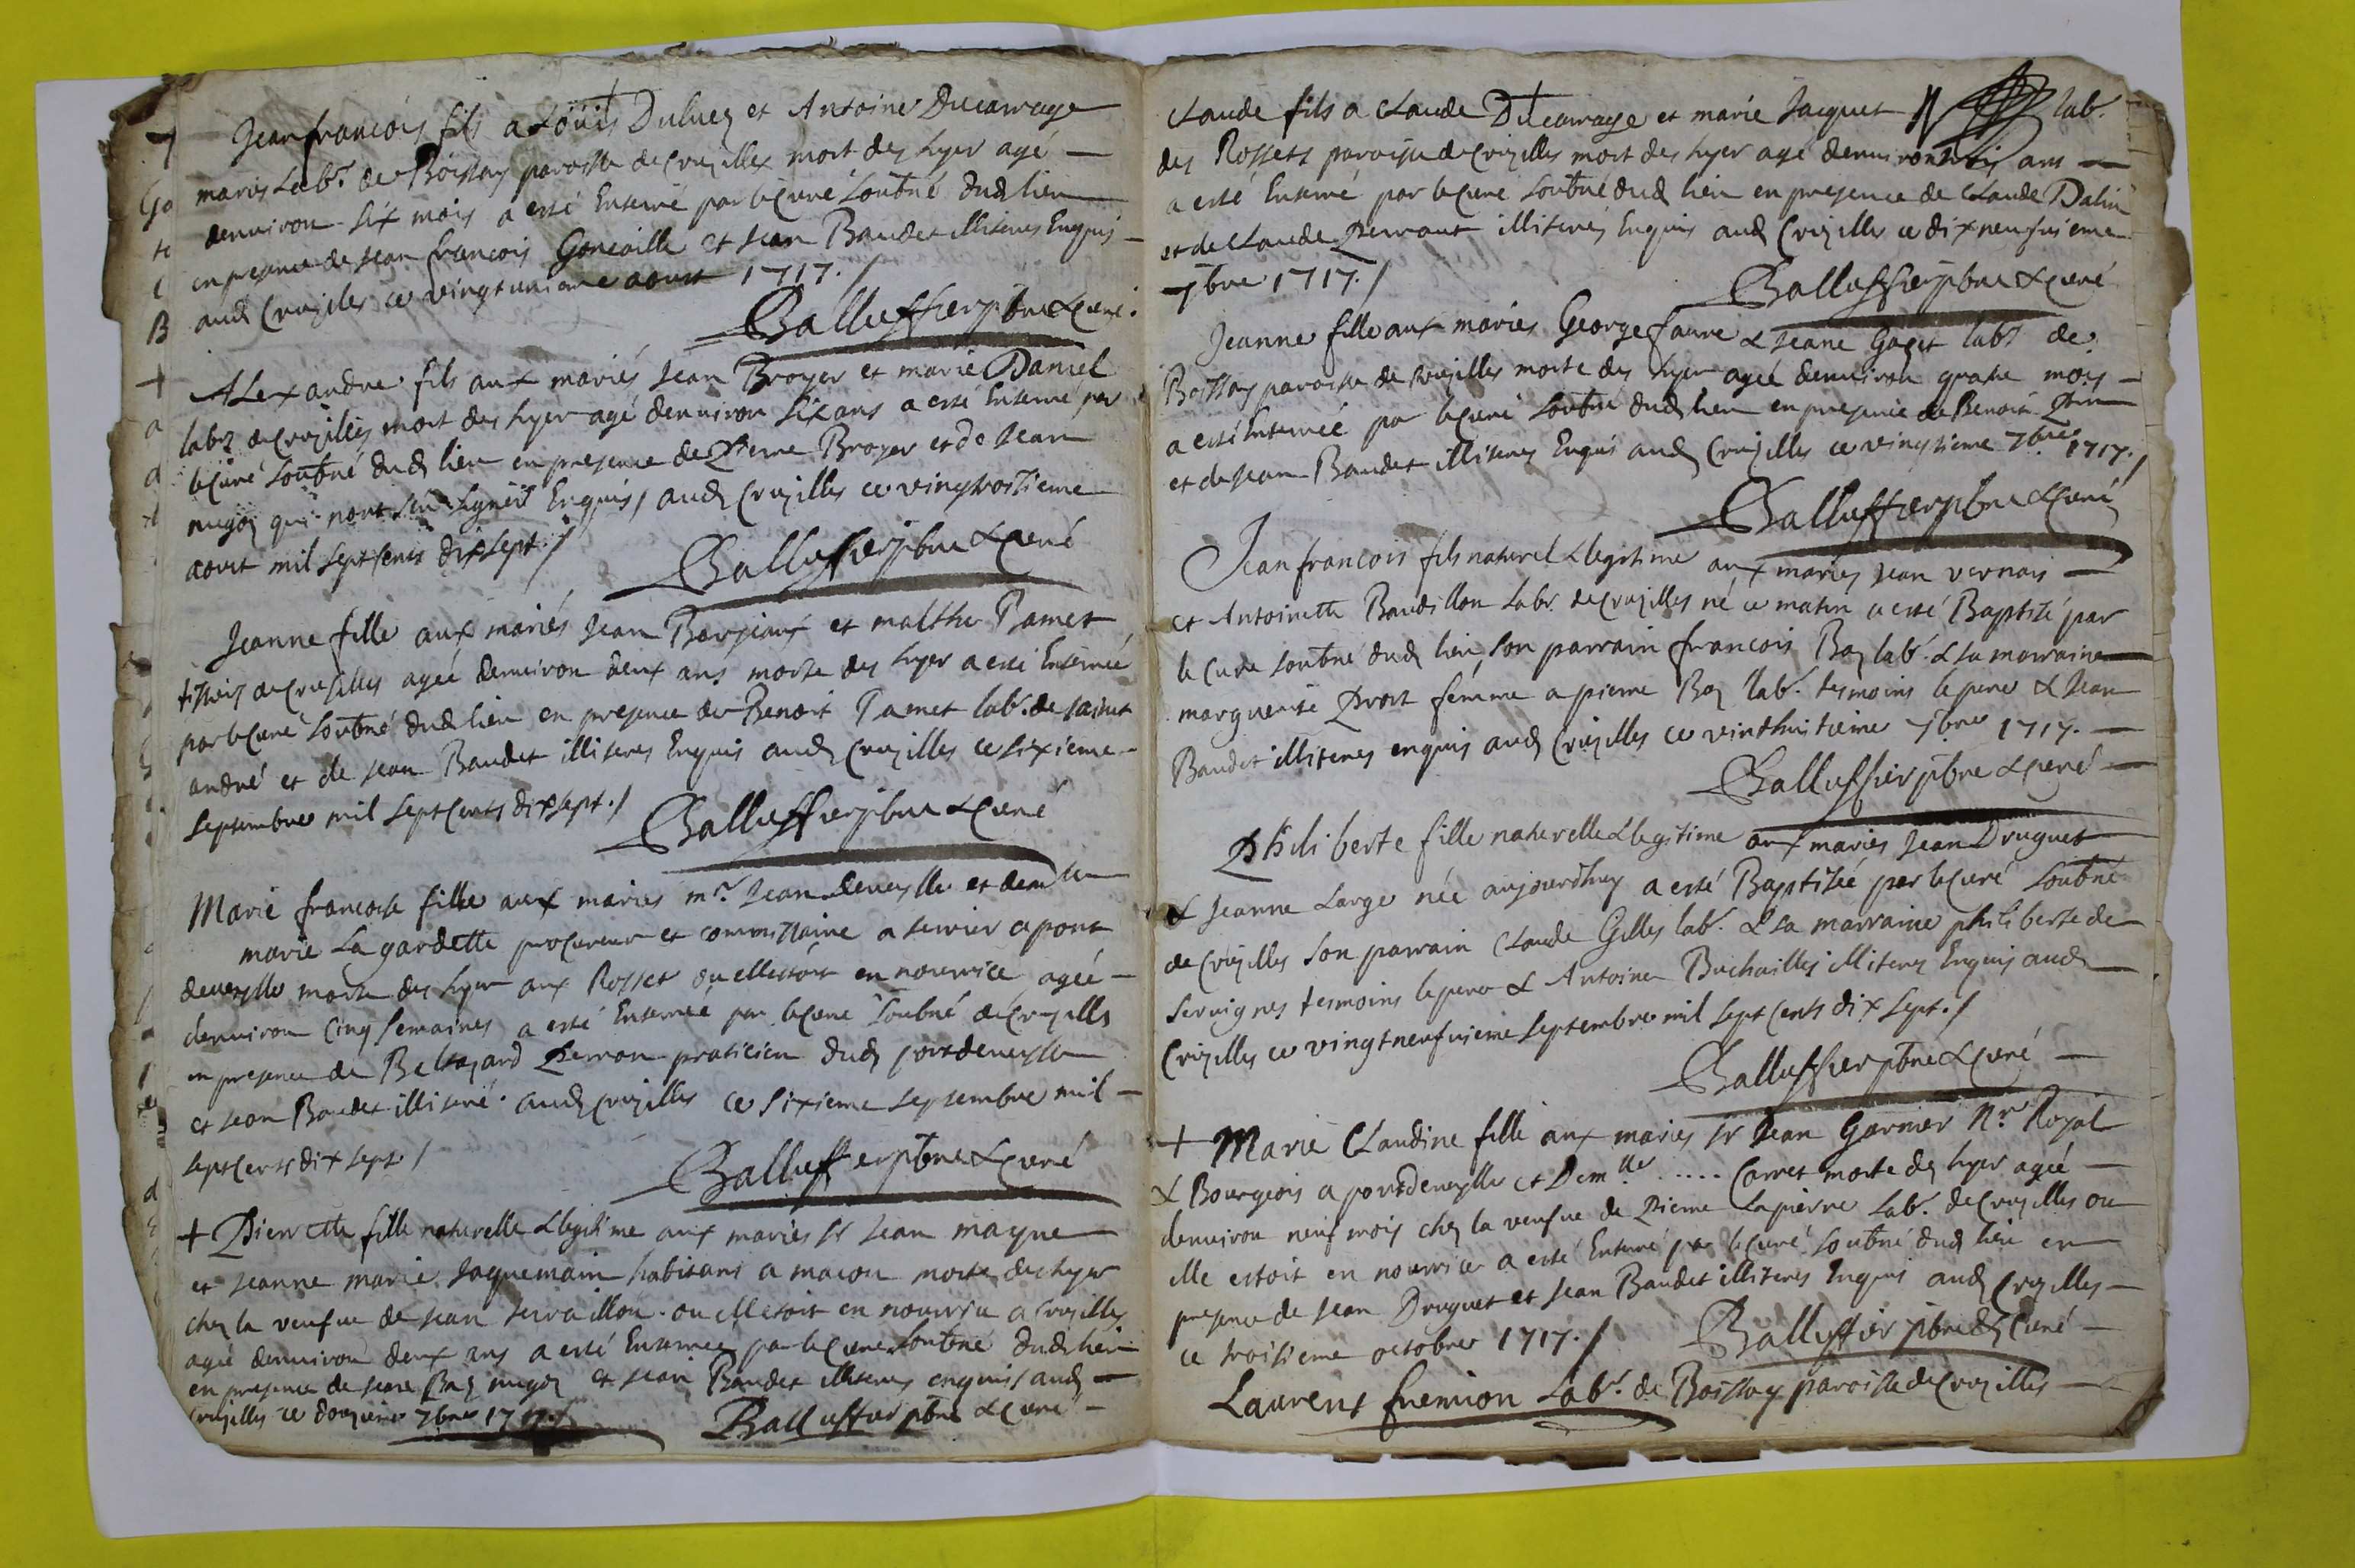 Jean francois fils a Louis Duluez et Antoine Ducarrage
mariés Labr. de Boissay paroisse de Cruzilles mort des hyer agé
denviron six mois a esté Enterré par le Curé soubné dud lieu
en presence de Jean francois Goncaille et Jean Baudet illiteres Enquis
aud Cruzilles ce vingtunieme aoust 1717. /
Balluffier pbre & Curé.
Alexandre fils aux mariés Jean Broyer et marie Daniel
labrs de Cruzilles mort des hyer agé denviron six ans a esté Enterré par
le Curé soubné dud lieu en presence de Pierre Broyer et de Jean
mugoz qui nont sceu signer Enquis / aud Cruzilles ce vingttroisieme
aoust mil sept cents dix sept. /
Balluffier pbre & Curé
Jeanne fille aux mariés Jean Borjaux et malthe Pamet
tissiers de Cruzilles agée denviron deux ans morte des hyer a esté Enterrée
par le Curé soubné dud lieu en presence de Benoit Pamet labr. de saint
andré et de Jean Baudet illiteres Enquis aud Cruzilles ce sixieme
septembre mil sept Cents dix sept. /
Balluffier pbre & Curé
Marie francoise fille aux mariés mr. Jean deveylle et demlle
marie Lagardette procureur et commissaire a terrier a pont
deveylle morte des hyer aux Rosset ou elle estoit en nourrice agée
denviron Cinq semaines a esté Enterrée par le Curé soubné de Cruzilles
en presence de Baltazard Perron praticien dud pontdeveylle
et Jean Baudet illiteré. aud Cruzilles ce sixieme septembre mil
sept Cents dix sept. /
Balluffier pbre & Curé
+ Pierrette fille naturelle & legitime aux mariés sr Jean mayne
et Jeanne marie Jaquemain habitans a macon morte des hyer
chez la veufue de Jean servaillon ou elle estoit en nourrice a Cruzilles
agée denviron deux ans a esté Enterrée par le Curé soubné dud lieu
en presence de Jean Baz mugoz et Jean Baudet illiteres enquis / aud
Cruzilles ce douzieme 7bre 1717. /
Balluffier pbre & Curé
Claude fils a Claude Ducarrage et marie Jacquet labr.
des Rossets paroisse de Cruzilles mort des hyer agé denviron trois ans
a esté Enterré par le Curé soubné dud lieu en presence de Claude Dalin
et de Claude Perraut illiterés Enquis aud Cruzilles ce dixneufuieme
7bre 1717. /
Balluffier pbre & Curé
Jeanne fille aux mariés George faure & Jeane Gaget labrs de
Boissay paroisse de Cruzilles morte des hyer agée denviron quatre mois
a esté Enterrée par le Curé soubné dud lieu en presence de Benoit
et de Jean Baudet illiteres Enquis aud Cruzilles ce vingtieme 7bre 1717. /
Balluffier pbre & Curé
Jean francois fils naturel & legitime aux mariés Jean vernais
et Antoinette Baudillon Labr. de Cruzilles né ce matin a esté Baptisé par
le Cure soubné dud lieu, son parrain francois Baz labr. & sa marraine
marguerite Prost femme a pierre Baz labr. tesmoins le pere & Jean
Baudet illiteres enquis aud Cruzilles ce vinthuitieme 7bre 1717.
Balluffier pbre & Curé
Philiberte fille naturelle & legitime aux mariés Jean Druguet
& Jeanne Large née aujourdhuy a esté Baptisée par le Curé soubné
de Cruzilles son parrain Claude Gilles labr. & sa marraine philiberte de
servignes tesmoins le pere & Antoine Buchailles illiteres Enquis aud
Cruzilles ce vingtneufuieme septembre mil sept Cents dix sept. /
Balluffier pbre & Curé
+ Marie Claudine fille aux mariés sr Jean Garnier Nre Royal
& Bourgeois a pontdeveylle et Demlle ..... Carret morte des hyer agée
denviron neuf mois chez la veufue de Pierre Lapierre Labr. de Cruzilles ou
elle estoit en nourrice a esté Enterré par le Curé soubné dud lieu en
presence de Jean Druguet et Jean Baudet illiteres Enquis aud Cruzilles
ce troisieme octobre 1717. /
Balluffier pbre & Curé
Laurent fremion Labr. de Boissay paroisse de Cruzilles